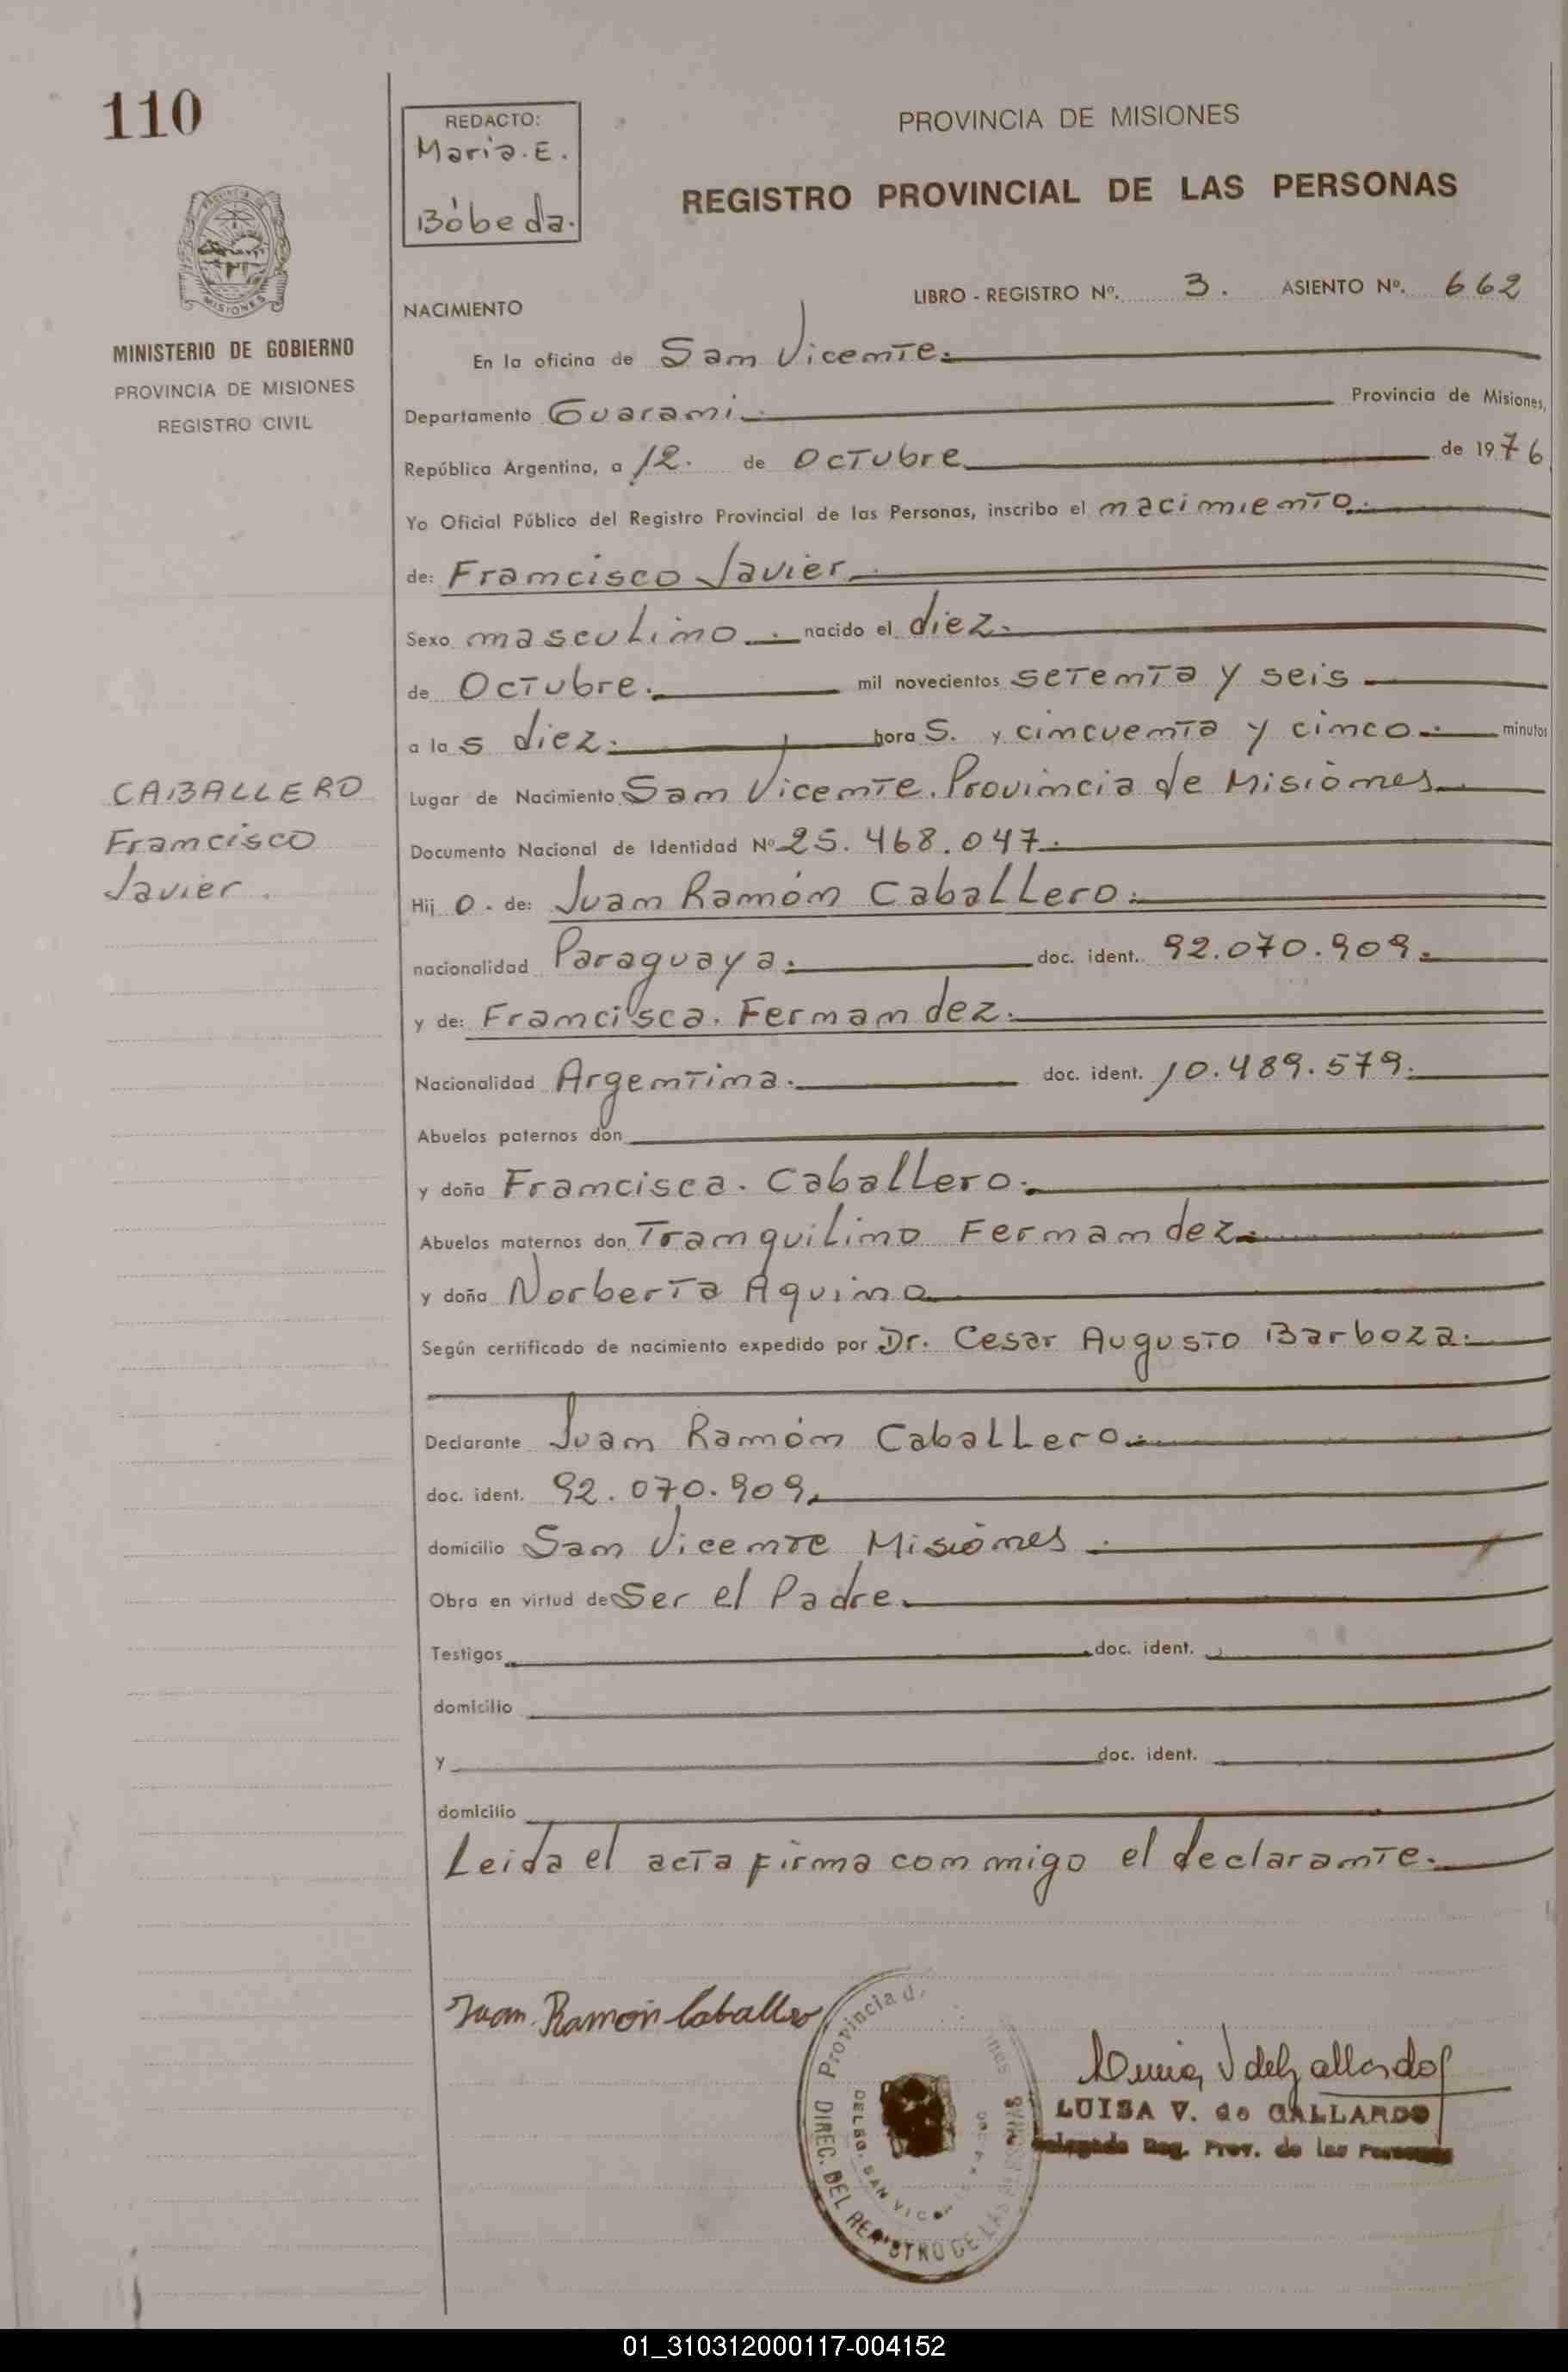 110
REDACTO:
Maria. E.
Bóbeda.
PROVINCIA DE MISIONES
REGISTRO PROVINCIAL DE LAS PERSONAS
MISIONES
MINISTERIO DE GOBIERNO
PROVINCIA DE MISIONES
REGISTRO CIVIL
NACIMIENTO
LIBRO - REGISTRO Nº. 3. ASIENTO Nº. 662
En la oficina de San Vicente.
Departamento Guarani. Provincia de Misiones,
República Argentina, a 12. de Octubre de 1976
Yo Oficial Público del Registro Provincial de las Personas, inscribo el nacimiento.
de: Francisco Javier.
Sexo masculino. nacido el diez.
de Octubre. mil novecientos setenta y seis
a las diez. horas. y cincuenta y cinco. minutos
Lugar de Nacimiento San Vicente. Provincia de Misiónes
CABALLERO
Francisco
Javier.
Documento Nacional de Identidad Nº 25.468.047.
Hijo. de: Juan Ramón Caballero.
nacionalidad Paraguaya. doc. ident. 92.070.909.
y de: Francisca. Fernandez.
Nacionalidad Argentina. doc. ident. 10.489.579.
Abuelos paternos don
y doña Francisca. Caballero.
Abuelos maternos don Tranquilino Fernandez.
y doña Norberta Aquino
Según certificado de nacimiento expedido por Dr. Cesar Augusto Barboza.
Declarante Juan Ramón Caballero.
doc. ident. 92.070.909.
domicilio San Vicente Misiónes.
Obra en virtud de Ser el Padre.
Testigos doc. ident.
domicilio
y doc. ident.
domicilio
Leida el acta firma con migo el declarante.
Juan Ramón Caballero
Provincia d.
DIREC. DEL REGISTRO DE LAS
DELEG. SAN VIC
LUISA V. de GALLARDO
Delegada Reg. Prov. de las Personas
01_310312000117-004152